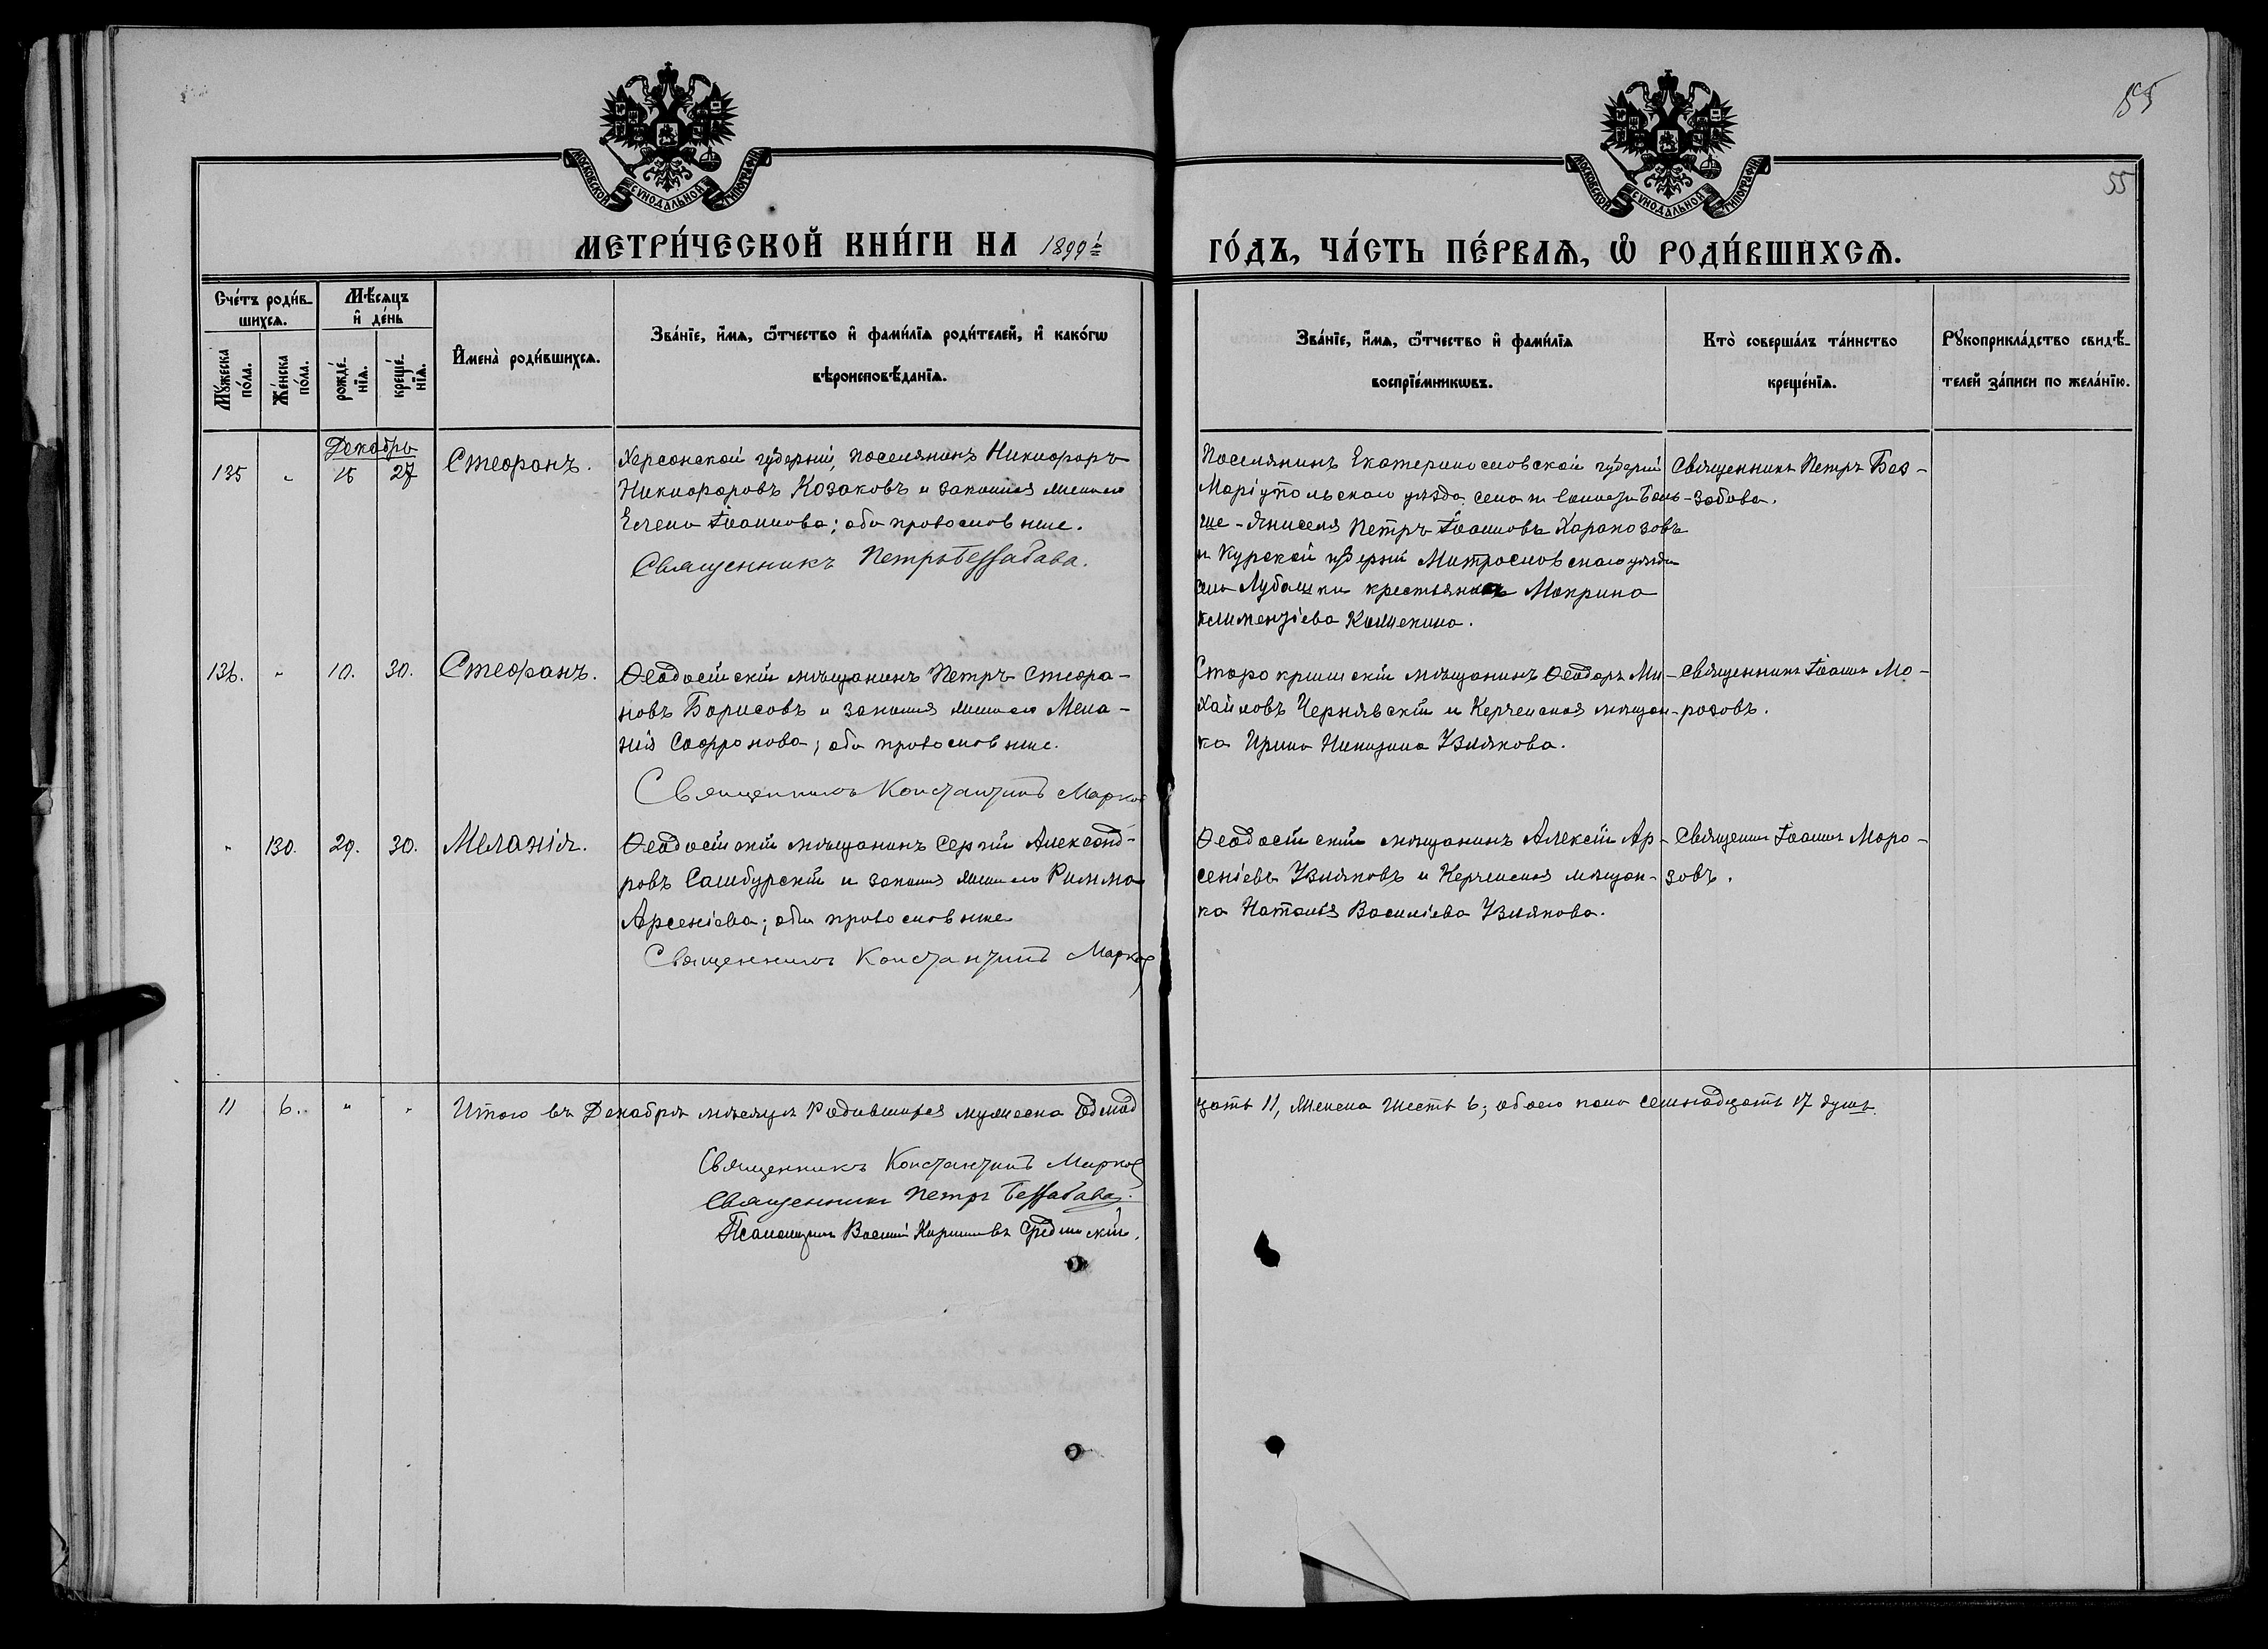 155
МОСКОВСКОЙ СѴНОДАЛЬНОЙ ТИПОГРАФІИ
МОСКОВСКОЙ СѴНОДАЛЬНОЙ ТИПОГРАФІИ
55
МЕТРИ́ЧЕСКОЙ КНИ́ГИ НА 1899й
ГО́ДЪ, ЧА́СТЬ ПЕ́РВАѦ, Ѿ РОДИ́ВШИХСѦ.
Сче́тъ роди́в-
шихсѧ.
Мꙋ́жеска по́ла.
Же́нска по́ла.
Мѣ́сѧцъ
и҆ де́нь
рожде́-
нїѧ.
креще́-
нїѧ.
И҆мена̀ роди́вшихсѧ.
Зва́нїе, и҆́мѧ, ѻ҆́тчество и҆ фами́лїѧ роди́телей, и҆ како́гѡ
вѣроисповѣ́данїѧ.
Зва́нїе, и҆́мѧ, ѻ҆́тчество и҆ фами́лїѧ
воспрїе́мникѡвъ.
Кто̀ соверша́лъ та́инство
креще́нїѧ.
Рꙋкоприкла́дство свидѣ́-
телей за́писи по жела́нїю.
Декабрь
135 „ 15 27 Стефанъ.
Херсонской губерніи, поселянинъ Никифоръ
Никифоровъ Козаковъ и законная жена его
Елена Іоаннова; оба православные.
Священникъ Петръ Беззабава.
Поселянинъ Екатеринославской губерніи
Маріупольскаго уѣзда села Боль-
ше-Янисоля Петръ Іоанновъ Харахозовъ
и Курской губерніи Митрославскаго уѣзда
села Лубашки крестьянка Макрина
Климентіева
Священникъ Петръ Без-
забава.
136. „ 10. 30. Стефанъ.
Ѳеодосійскій мѣщанинъ Петръ Стефа-
новъ Борисовъ и законная жена его Мела-
нія Софронова; оба православные.
Священникъ Константинъ Марков
Старокрымскій мѣщанинъ Ѳеодоръ Ми-
хайловъ Чернявскій и Керченская мѣщан-
ка Ирина Никитина Узлякова.
Священникъ Іоаннъ Мо-
розовъ.
„ 130. 29. 30. Меланія.
Ѳеодосійскій мѣщанинъ Сергій Александ-
ровъ Самбурскій и законная жена его Римма
Арсеніева; оба православные
Священникъ Константинъ Марков
Ѳеодосійскій мѣщанинъ Алексій Ар-
сеніевъ Узляковъ и Керченская мѣщан-
ка Наталія Василіева Узлякова.
Священникъ Іоаннъ Моро-
зовъ.
11 6. „ „ Итого въ Декабрѣ мѣсяцѣ родившихся мужеска одинад
цать 11, женска шесть 6; обоего пола семнадцать 17 душъ.
Священникъ Константинъ Марков
Священникъ Петръ Беззабава.
Псаломщикъ Василій Срединскій.